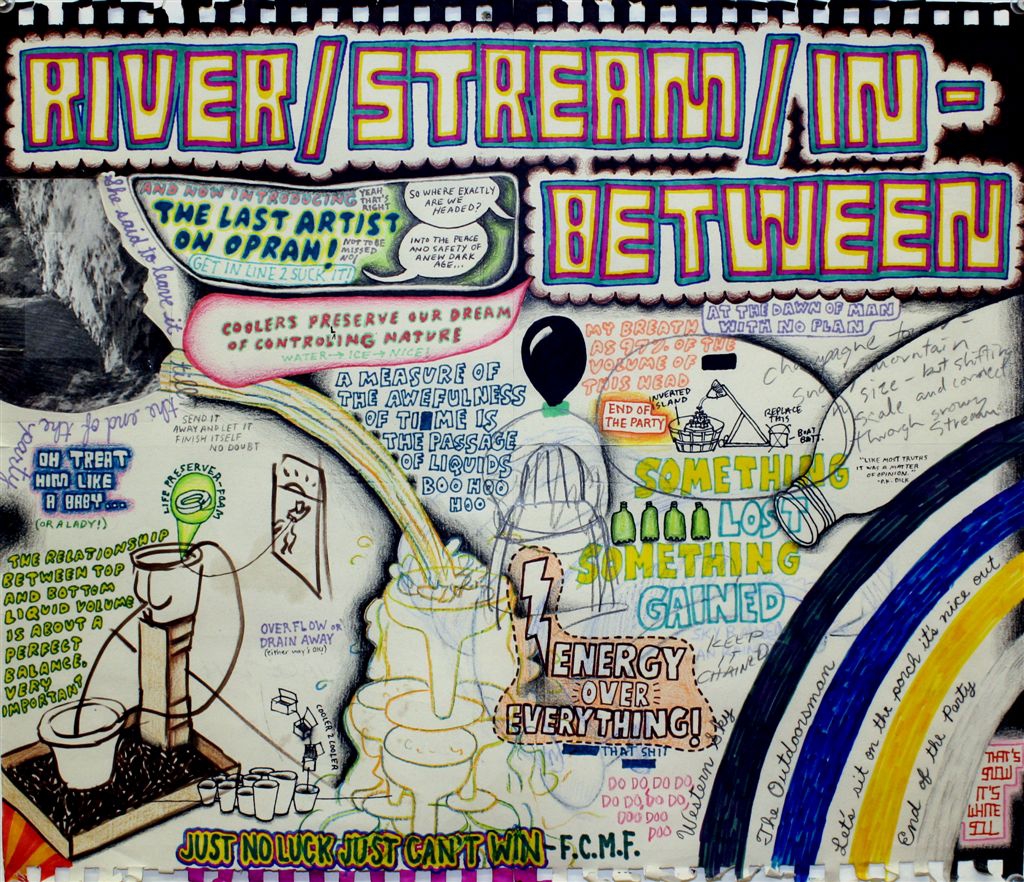 RIVER/STREAM/IN-
BETWEEN
AND NOW INTRODUCING
YEAH
THAT'S
RIGHT
THE LAST ARTIST
ON OPRAH!
NOT TO BE
MISSED
NO!
GET IN LINE 2 SUCK IT!
SO WHERE EXACTLY
ARE WE
HEADED?
INTO THE PEACE
AND SAFETY OF
A NEW DARK
AGE...
She said to leave it
till the end of the party
COOLERS PRESERVE OUR DREAM
OF CONTROLING NATURE
WATER → ICE → NICE!
AT THE DAWN OF MAN
WITH NO PLAN
MY BREATH
AS 97% OF THE
VOLUME OF
THIS HEAD
A MEASURE OF
THE AWEFULNESS
OF TIME IS
THE PASSAGE
OF LIQUIDS
BOO HOO
HOO
Champagne
mountain
size - but shifting
scale and connect
through snowy
streams
END OF
THE PARTY
INVERTED
ISLAND
REPLACE
THIS
BOAT
BATT.
"LIKE MOST TRUTHS
IT WAS A MATTER
OF OPINION."
-P.K. DICK
SEND IT
AWAY AND LET IT
FINISH ITSELF
NO DOUBT
OH TREAT
HIM LIKE
A BABY...
(OR A LADY!)
LIFE PRESERVER FOAM
SOMETHING
LOST
SOMETHING
GAINED
KEEP
IT
CHAINED
THE RELATIONSHIP
BETWEEN TOP
AND BOTTOM
LIQUID VOLUME
IS ABOUT A
PERFECT
BALANCE.
VERY
IMPORTANT
OVERFLOW OR
DRAIN AWAY
(either way's OK!)
COOLER 2 COOLER
ENERGY
OVER
EVERYTHING!
THAT SHIT
DO DO DO DO,
DO DO, DO DO,
DOO DO
DOO
Western Sky
The Outdoorsman
Let's sit on the porch it's nice out
End of the Party
THAT'S
SNOW
IT'S
WHITE
STILL
JUST NO LUCK JUST CAN'T WIN - F.C.M.F.